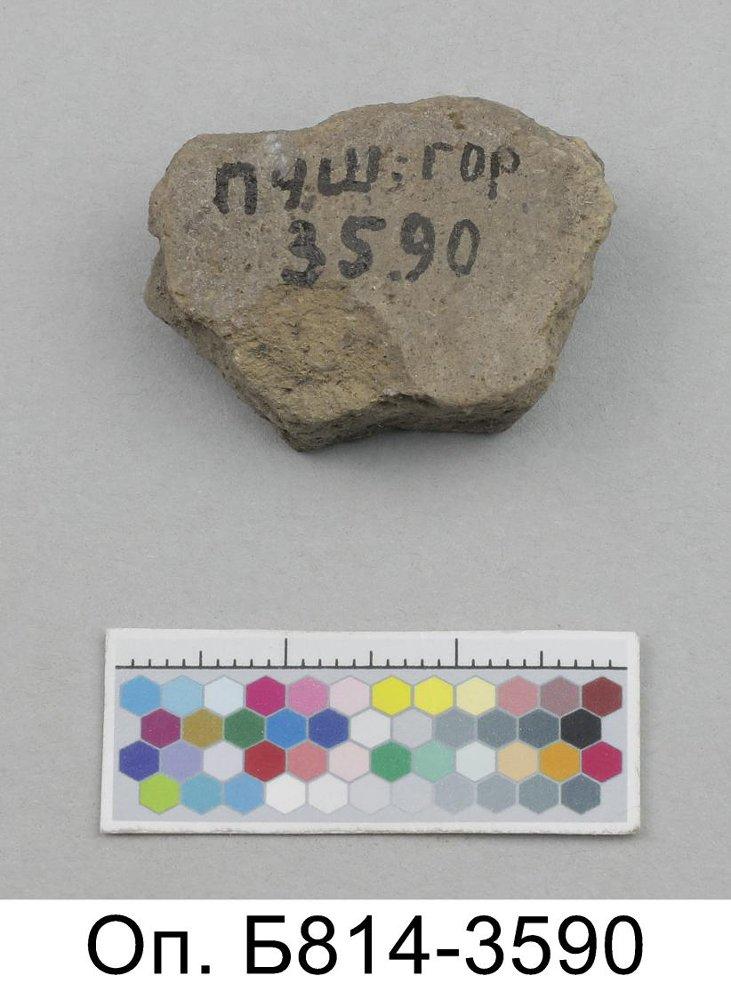 пуш. гор
3590
Оп. Б814-3590